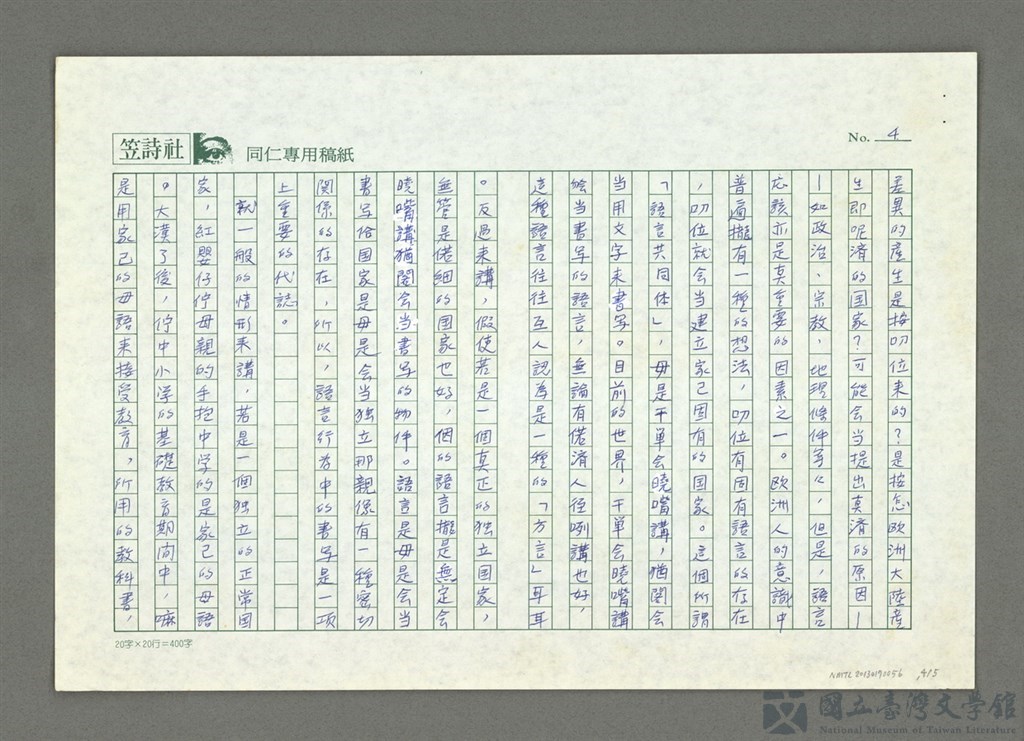 No. 4
笠詩社
同仁專用稿紙
差異的產生是按叨位来的？是按怎欧洲大陸產
生即呢済的国家？可能会当提出真済的原因－
－如政治、宗教、地理條件等々，但是，語言
応該亦是真重要的因素之一。欧洲人的意識中
普遍擁有一種的想法，叨位有固有語言的存在
，叨位就会当建立家己固有的国家。這個所謂
「語言共同体」，毋是干單会曉嘴講，猶閣会
当用文字来書写。目前的世界，干單会曉嘴講
繪当書写的語言，無論有偌済人径咧講也好，
這種語言往往互人認為是一種的「方言」耳耳
。反過来講，假使若是一個真正的独立国家，
無管是偌細的国家也好，個的語言攏是無定会
曉嘴講猶閣会当書写的物件。語言是毋是会当
書写佮国家是毋是会当独立那親像有一種密切
関係的存在，所以，語言行為中的書写是一項
上重要的代誌。
就一般的情形来講，若是一個独立的正常国
家，紅嬰仔佇母親的手抱中学的是家己的母語
。大漢了後，佇中小学的基礎教育期间中，嘛
是用家己的母語来接受教育，所用的教科書，
20字×20行＝400字
NMTL 20130190056 4/5
國立臺灣文學館
National Museum of Taiwan Literature